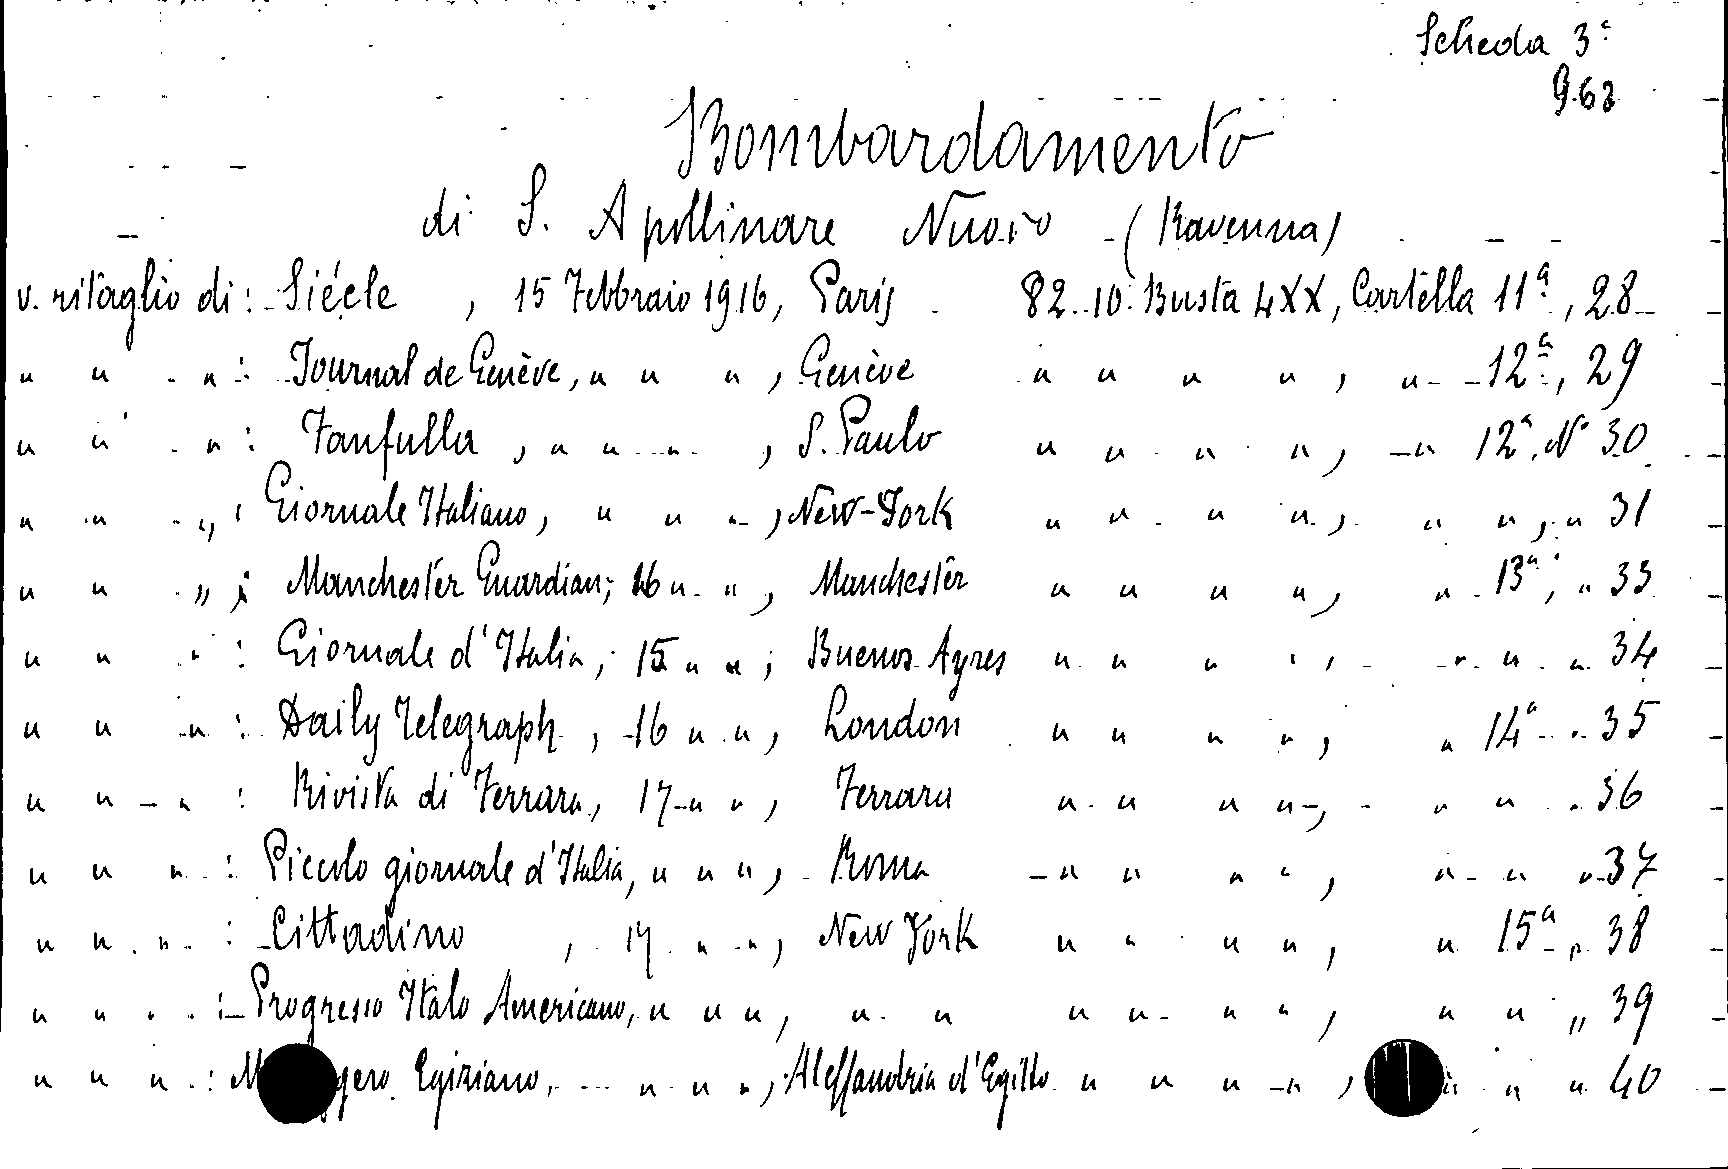 Scheda 3ª
963
Bombardamento
di S. Apollinare Nuovo (Ravenna)
v. ritaglio di: Siécle, 15 Febbraio 1916, Paris 82.10. Busta 4XX, Cartella 11ª, 28
" " " : Journal de Genève, " " ", Genève " " " ", " 12ª, 29
" " " : Fanfulla, " " ", S. Paulo " " " ", " 12ª, Nº 30
" " " : Giornale Italiano, " " ", New-York " " " ", " ", " 31
" " " : Manchester Guardian, 16 " ", Manchester " " " ", " 13ª, " 33
" " " : Giornale d'Italia, 15 " ", Buenos Ayres " " " ", " " " 34
" " " : Daily Telegraph, 16 " ", London " " " ", " 14ª " 35
" " " : Rivista di Ferrara, 17 " ", Ferrara " " " ", " " " 36
" " " : Piccolo giornale d'Italia, " " ", Roma " " " ", " " " 37
" " " : Cittadino, 17 " ", New York " " " ", " 15ª " 38
" " " : Progresso Italo Americano, " " ", " " " " " ", " " " 39
" " " : M ggero Egiziano, " " ", Alessandria d'Egitto " " " ", " " " 40